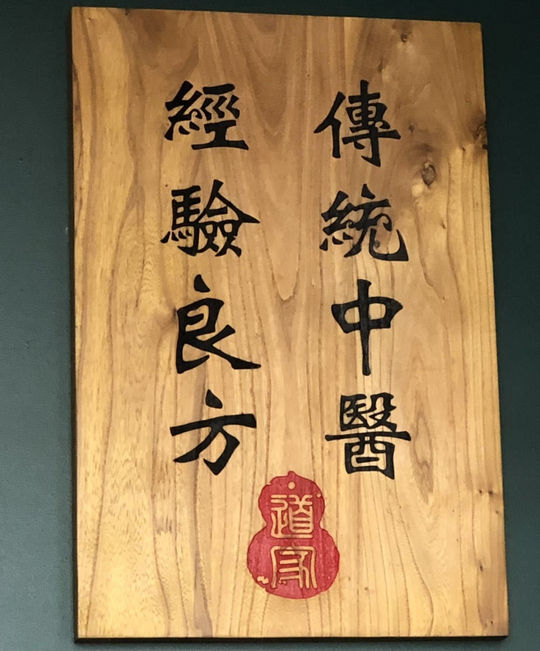 傳統中醫
經驗良方
道家